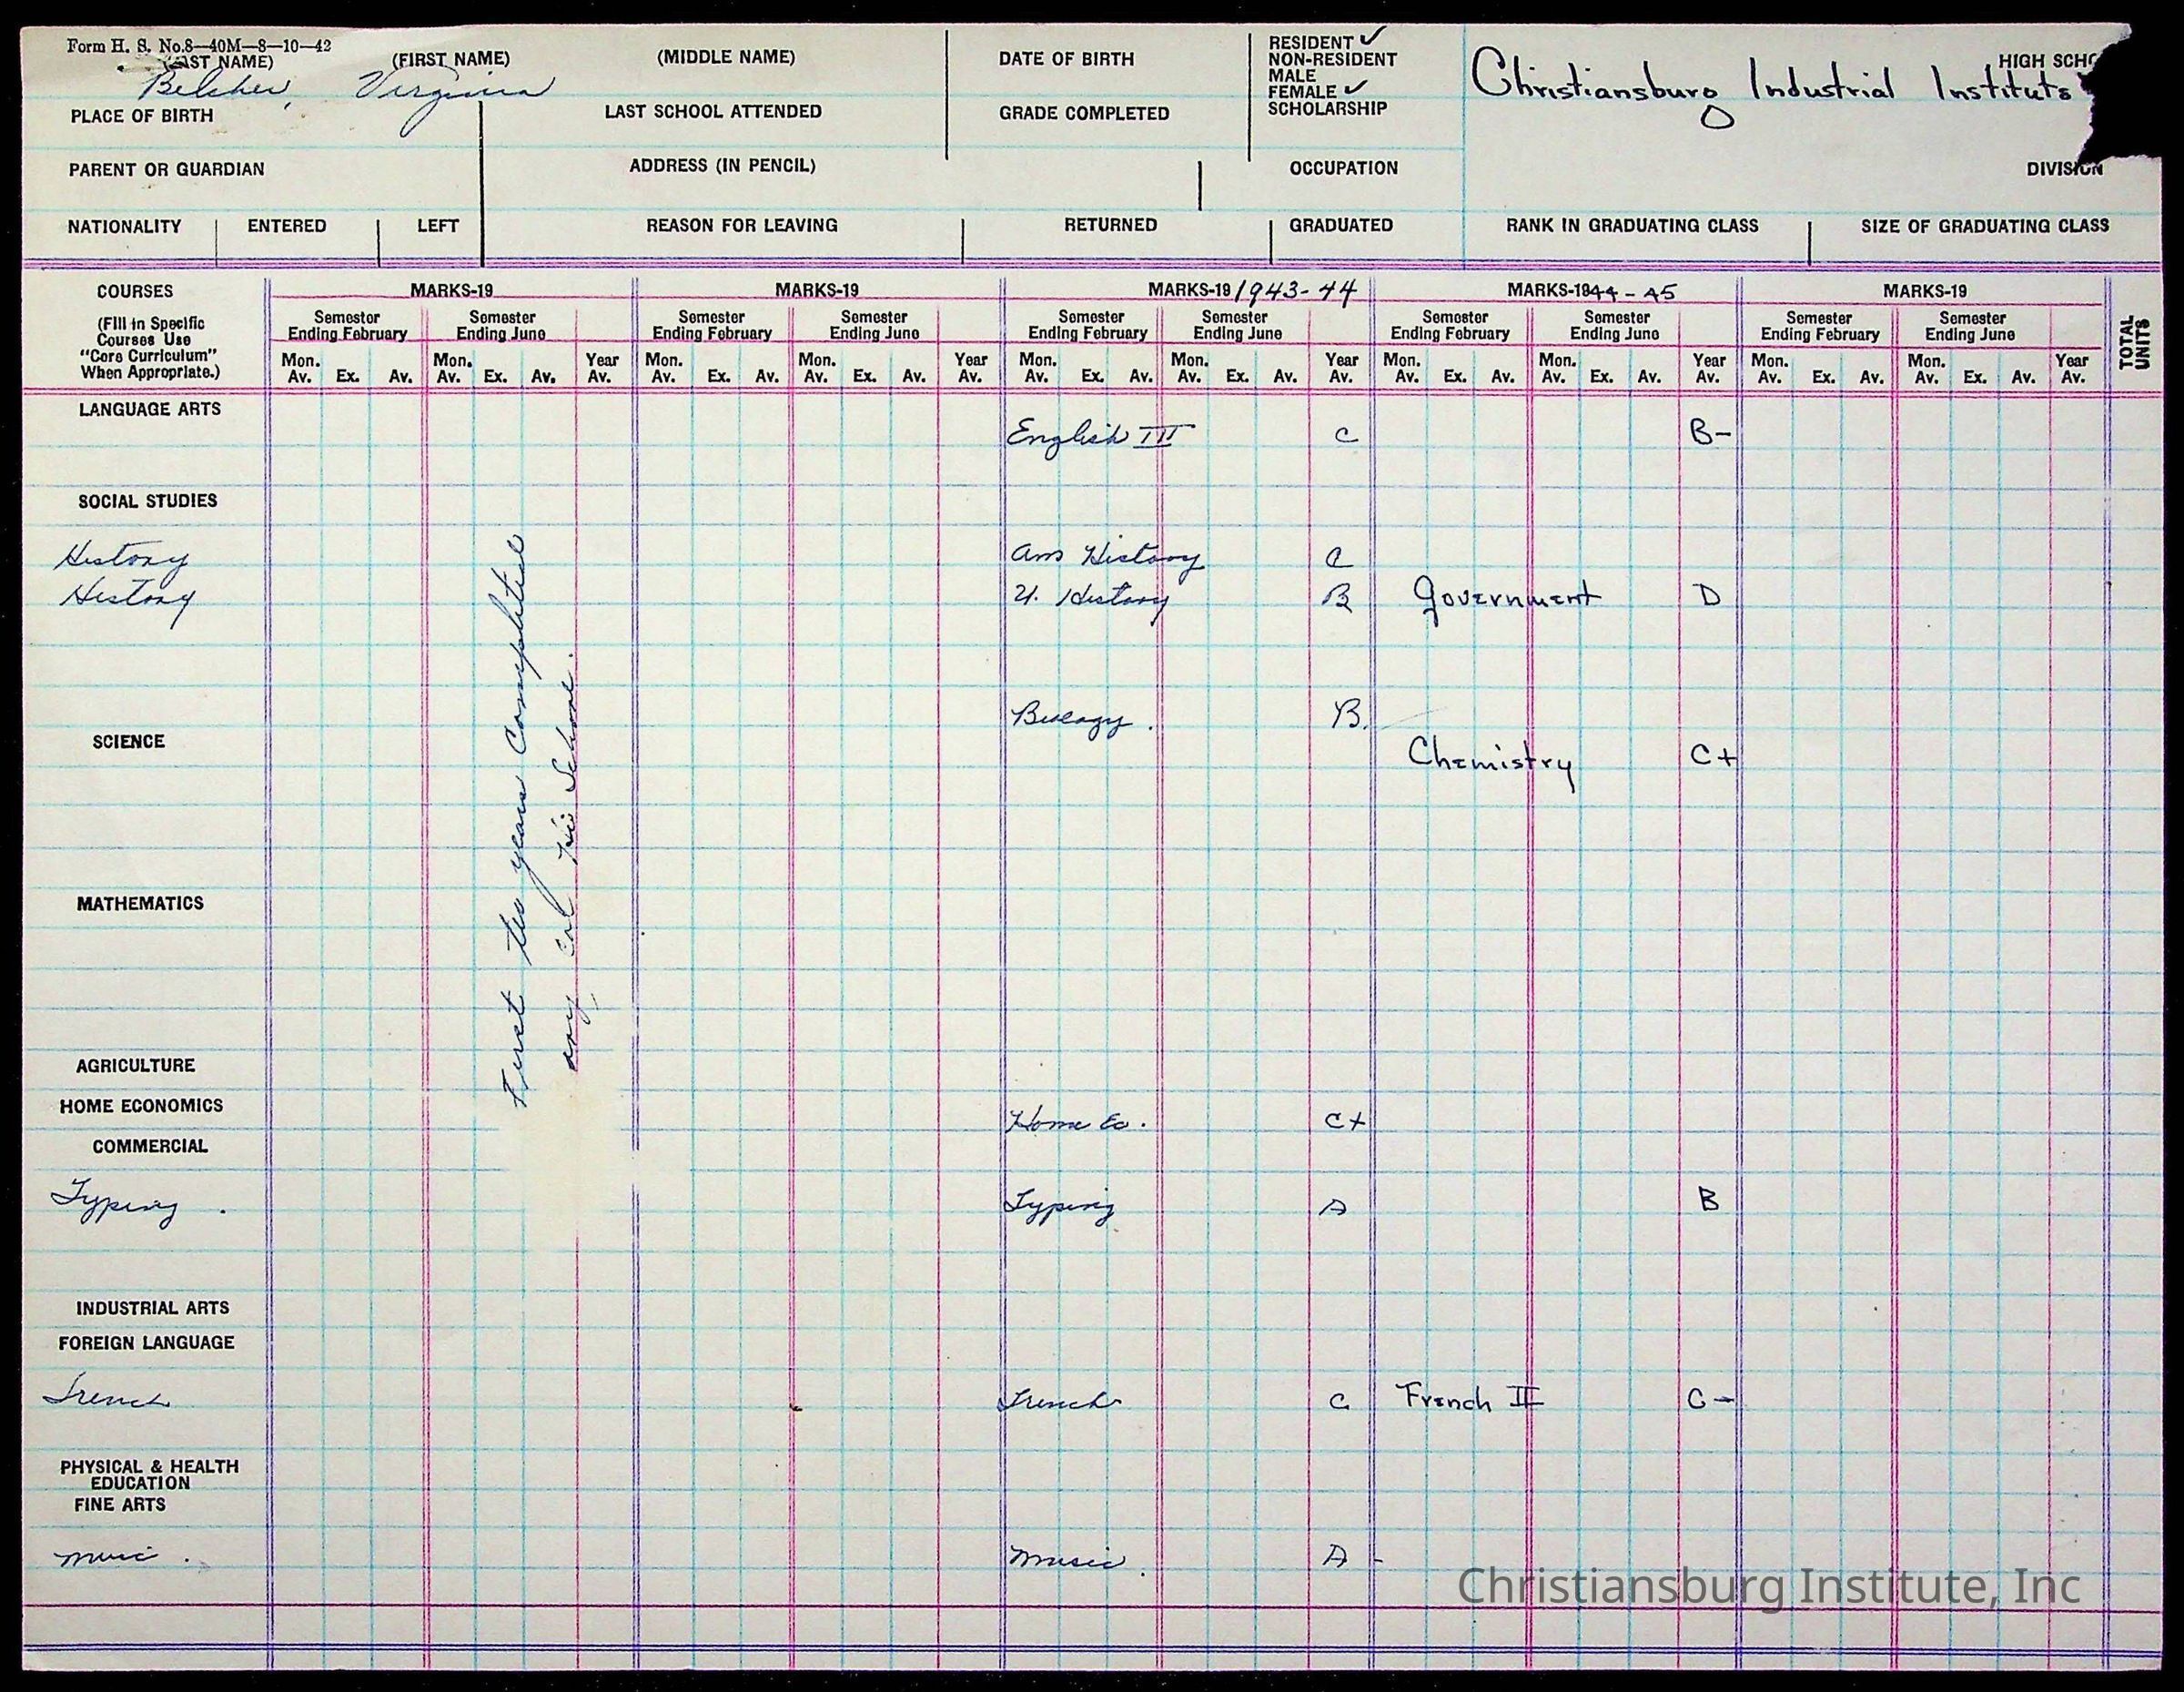 Form H. S. No.8—40M—8—10—42
(LAST NAME) (FIRST NAME) (MIDDLE NAME) DATE OF BIRTH
Belcher, Virginia
RESIDENT ✓
NON-RESIDENT
MALE
FEMALE ✓
SCHOLARSHIP
HIGH SCHO
Christiansburg Industrial Institute
PLACE OF BIRTH LAST SCHOOL ATTENDED GRADE COMPLETED
PARENT OR GUARDIAN ADDRESS (IN PENCIL) OCCUPATION DIVISION
NATIONALITY ENTERED LEFT REASON FOR LEAVING RETURNED GRADUATED RANK IN GRADUATING CLASS SIZE OF GRADUATING CLASS
COURSES
(Fill in Specific
Courses Use
"Core Curriculum"
When Appropriate.)
MARKS-19 MARKS-19 MARKS-19 1943-44 MARKS-1944-45 MARKS-19
TOTAL UNITS
Semester Ending February Semester Ending June Semester Ending February Semester Ending June Semester Ending February Semester Ending June Semester Ending February Semester Ending June Semester Ending February Semester Ending June
Mon. Av. Ex. Av. Mon. Av. Ex. Av. Year Av. Mon. Av. Ex. Av. Mon. Av. Ex. Av. Year Av. Mon. Av. Ex. Av. Mon. Av. Ex. Av. Year Av. Mon. Av. Ex. Av. Mon. Av. Ex. Av. Year Av. Mon. Av. Ex. Av. Mon. Av. Ex. Av. Year Av.
LANGUAGE ARTS
English III C B-
SOCIAL STUDIES
History Am History C
History History B Government D
First two years
School.
Biology. B.
SCIENCE
Chemistry C+
MATHEMATICS
AGRICULTURE
HOME ECONOMICS
Home Ec. C+
COMMERCIAL
Typing. Typing A B
INDUSTRIAL ARTS
FOREIGN LANGUAGE
French French C French II C-
PHYSICAL & HEALTH
EDUCATION
FINE ARTS
Music. Music. A -
Christiansburg Institute, Inc